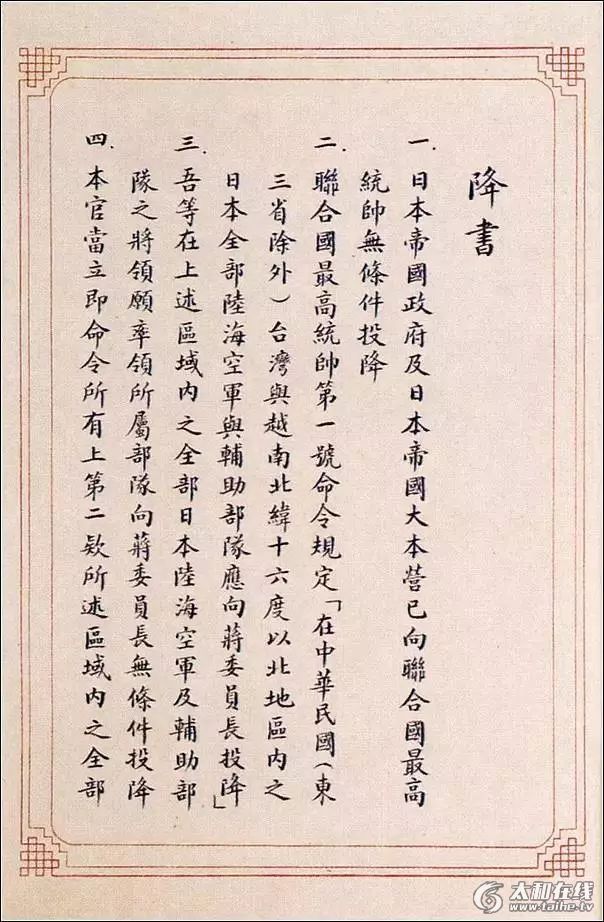 降書
一. 日本帝國政府及日本帝國大本營已向聯合國最高
統帥無條件投降
二. 聯合國最高統帥第一號命令規定「在中華民國(東
三省除外)台灣與越南北緯十六度以北地區內之
日本全部陸海空軍與輔助部隊應向蔣委員長投降」
三. 吾等在上述區域內之全部日本陸海空軍及輔助部
隊之將領願率領所屬部隊向蔣委員長無條件投降
四. 本官當立即命令所有上第二欵所述區域內之全部
太和在線
www.taihe.tv